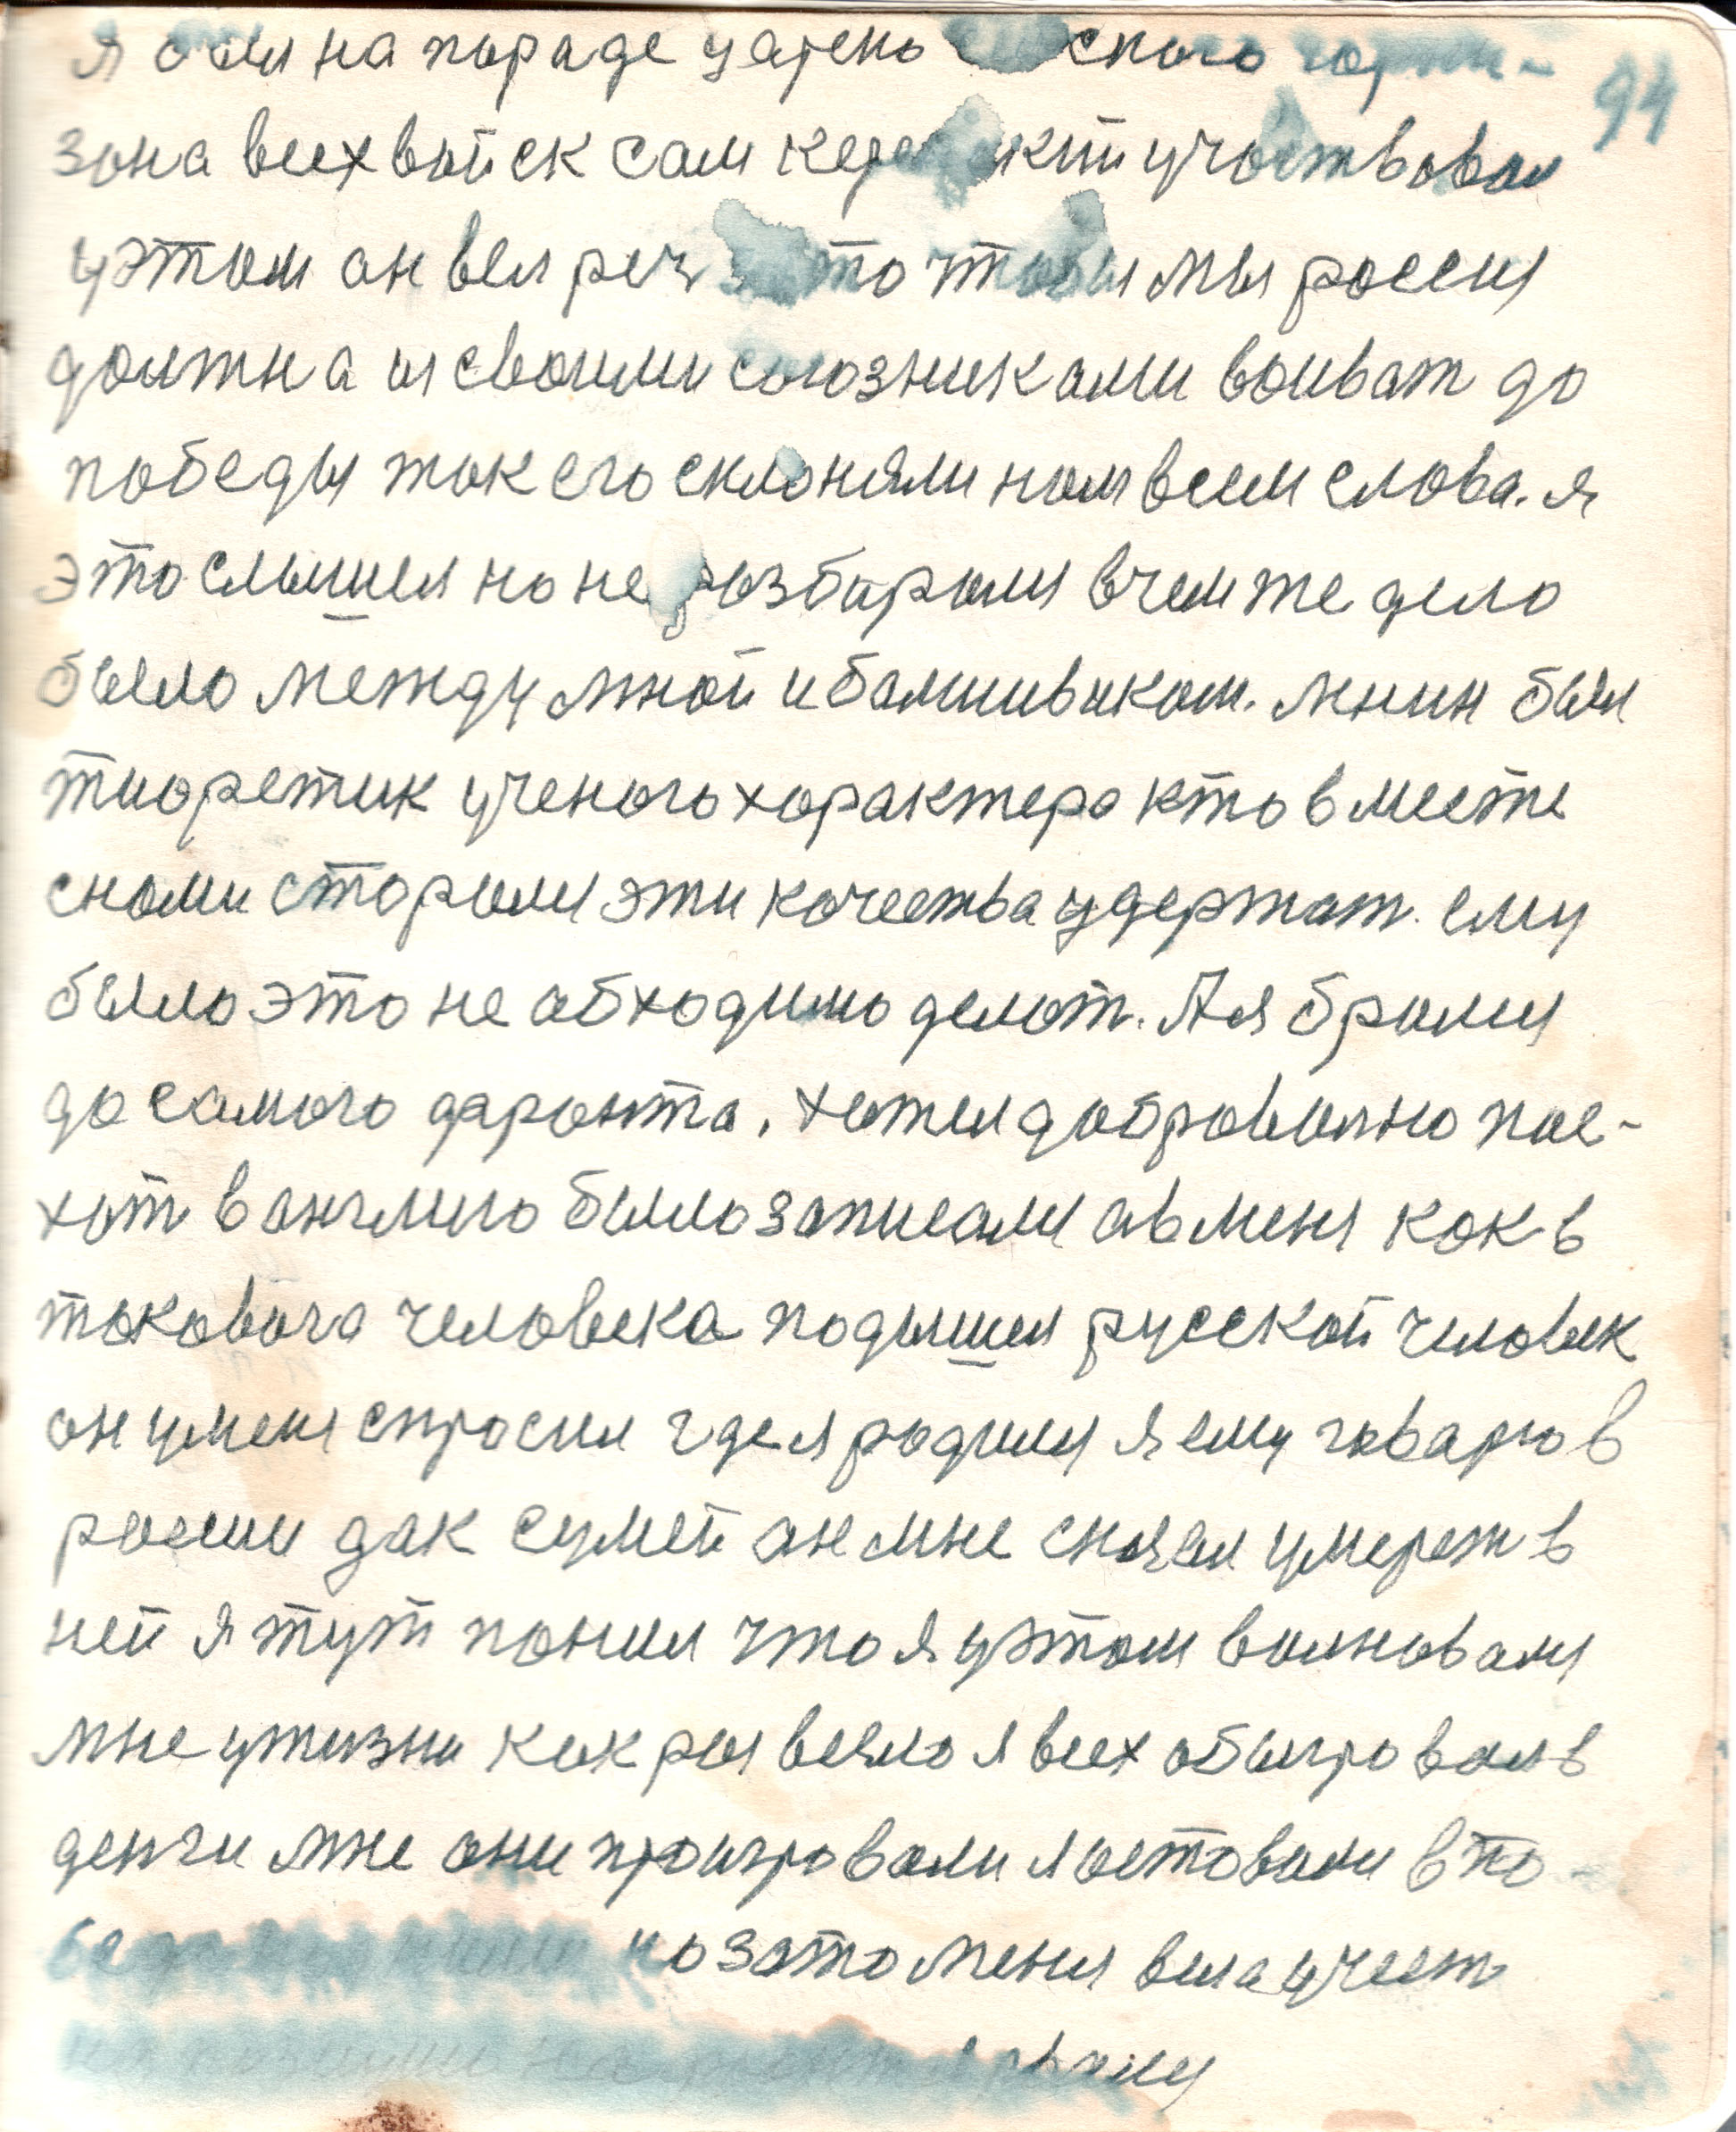 94
я был на параде царско сельского гарни-
зона всех войск сам керенский участвовал
у этом он вел реч за то чтобы мы россия
должна и своими союзниками воиват до
победы так его склоняли нам всем слова. я
это слышел но не розбираля в чем же дело
было между мной и балшивиком. ленин был
тиоретик ученого характера кто вместе
снами старалмя эти качества удержат. ему
было это не обходимо делат. А я бралмя
до самого фронта. хотел добровольно пое-
хат в англию было записалмя ав меня как в
таковога человека подышел русской человек
он у меня спросил где я родилмя я ему говарю в
росеии дак сумей он мне сказал умерет в
ней я тут понял что я у этом волноваля
мне у жизни как раз везло я всех обыгровал в
денги мне они проигровали я оставали в по-
но зато меня вела участ